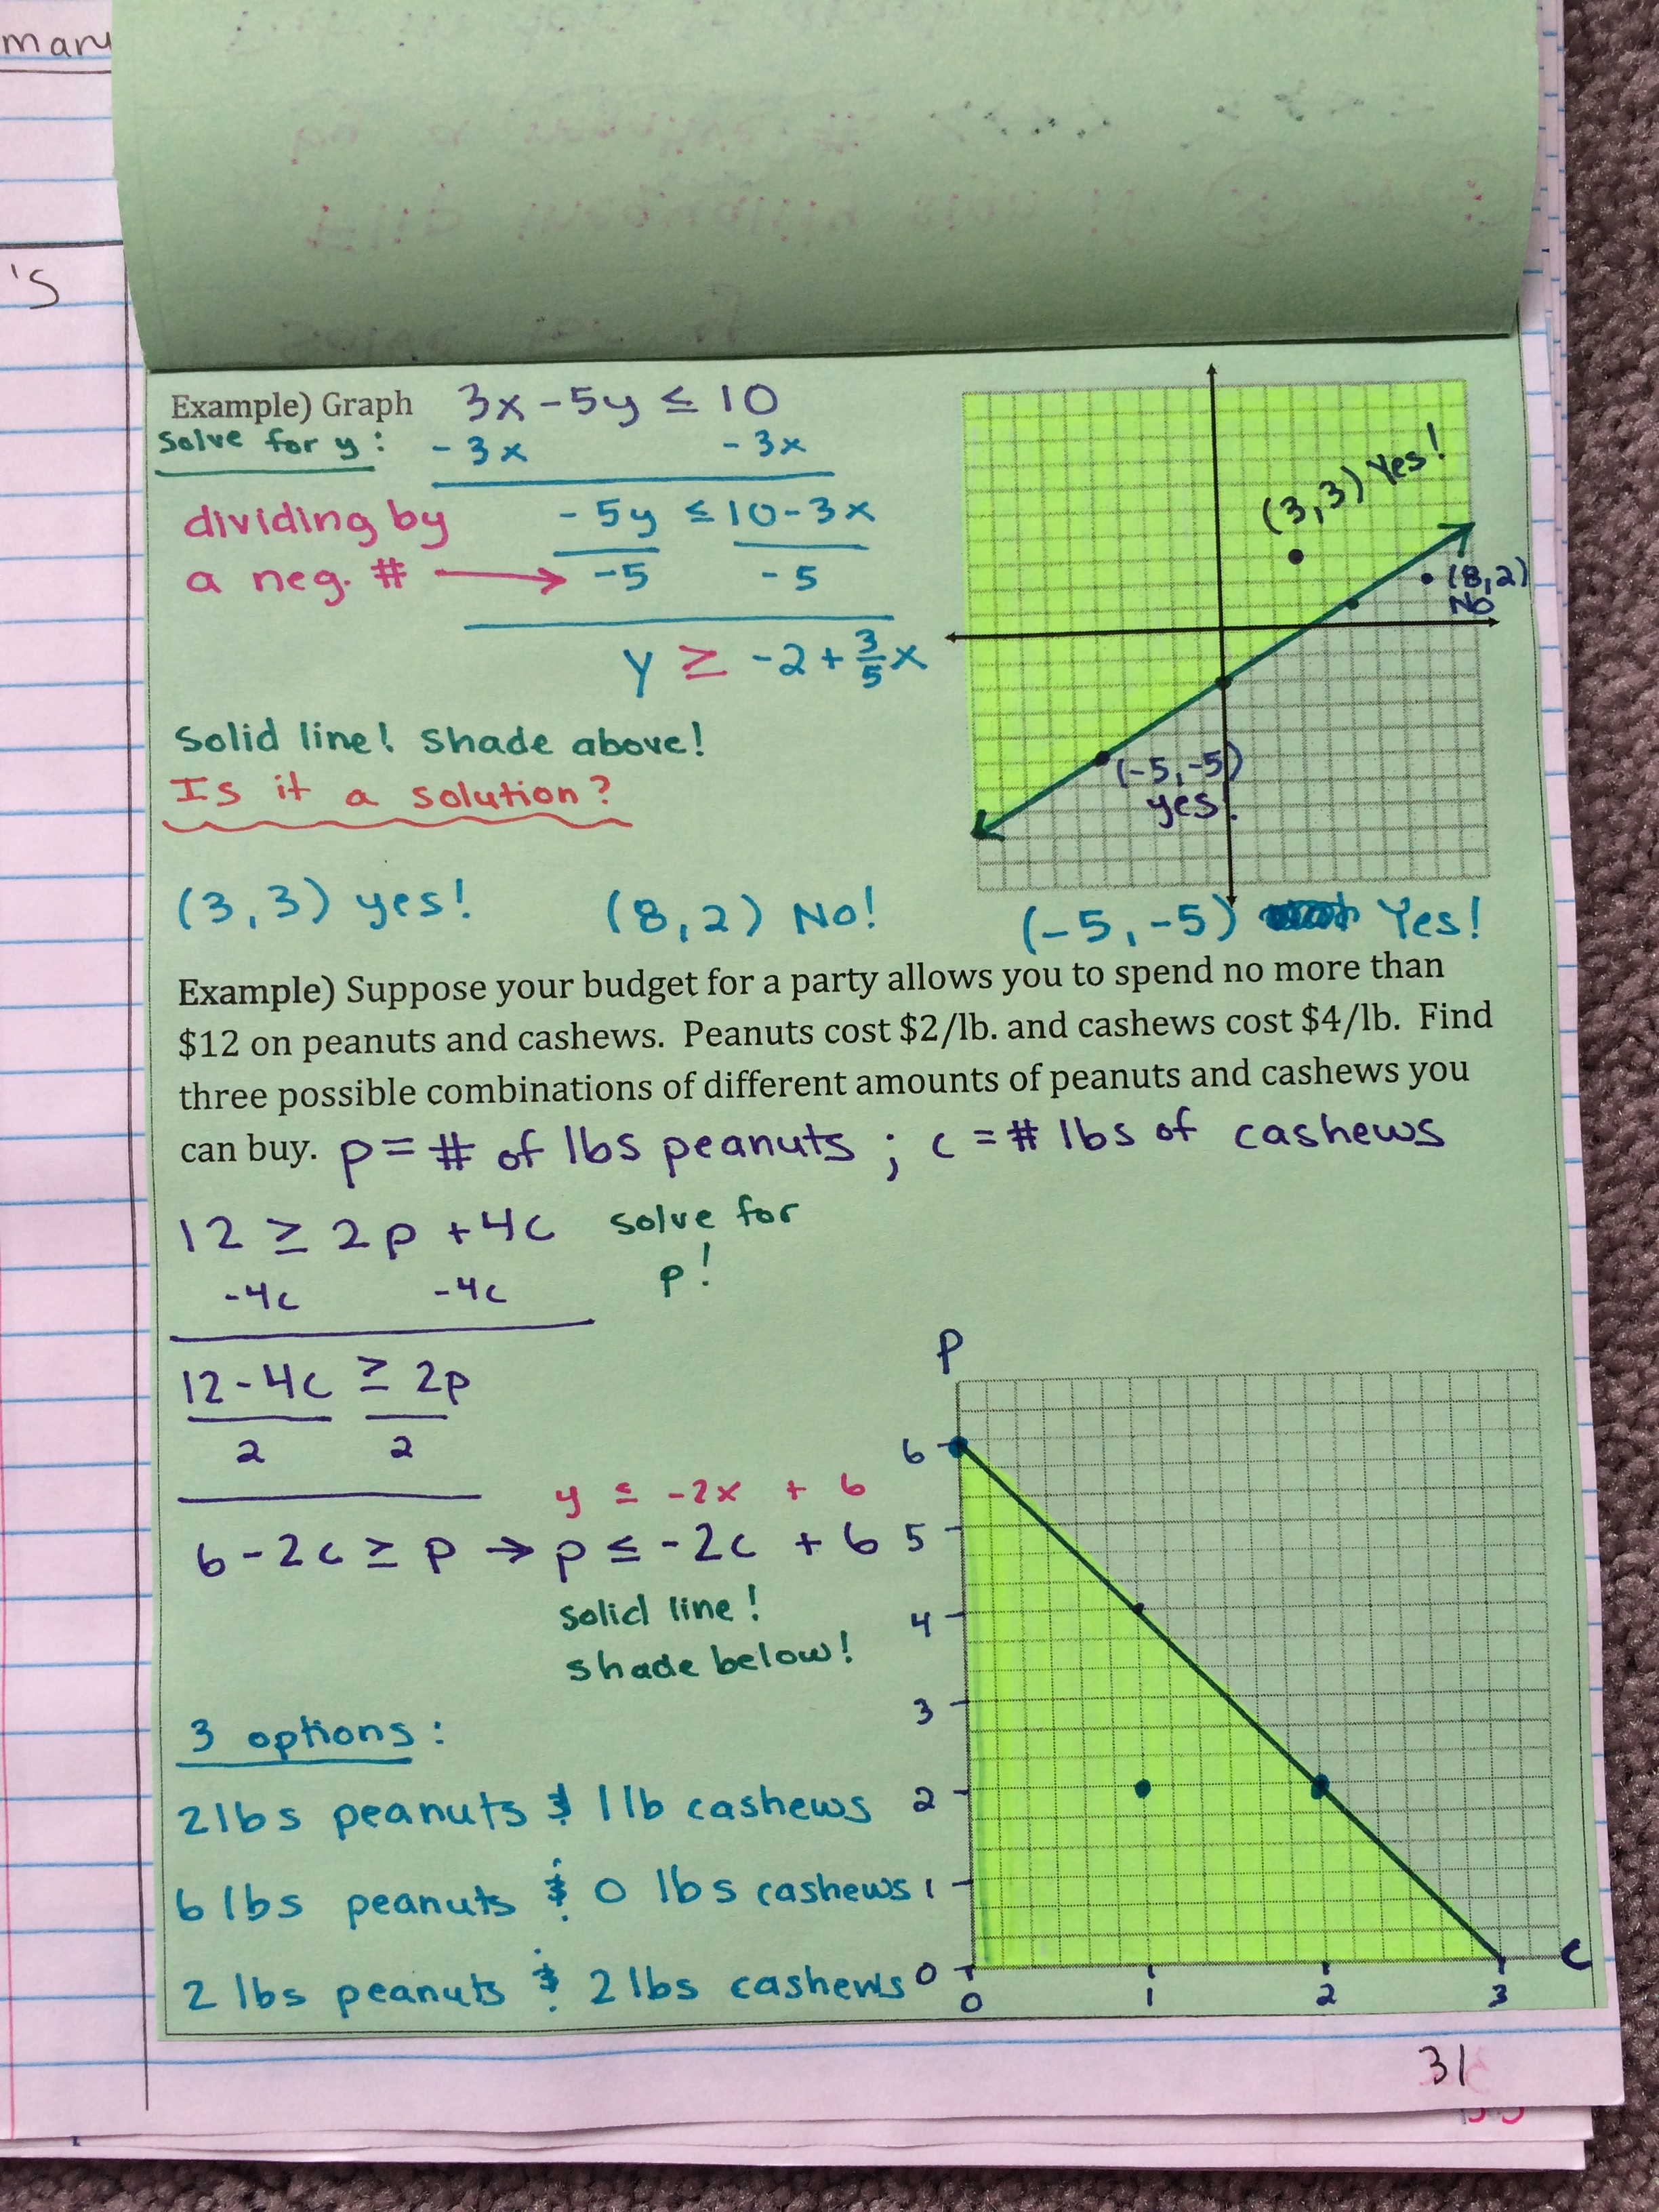 mary
's
Example) Graph 3x - 5y ≤ 10
solve for y: - 3x - 3x
dividing by - 5y ≤ 10 - 3x
a neg. # → -5 - 5
y ≥ -2 + 3/5 x
Solid line! Shade above!
Is it a solution?
(3,3) Yes!
(8,2)
No
(-5,-5)
yes!
(3,3) yes! (8,2) No! (-5,-5) Yes!
Example) Suppose your budget for a party allows you to spend no more than
$12 on peanuts and cashews. Peanuts cost $2/lb. and cashews cost $4/lb. Find
three possible combinations of different amounts of peanuts and cashews you
can buy. p = # of lbs peanuts ; c = # lbs of cashews
12 ≥ 2p + 4c solve for
-4c -4c p!
12 - 4c ≥ 2p
2 2
y ≤ -2x + 6
6 - 2c ≥ p → p ≤ -2c + 6
solid line!
shade below!
3 options:
2 lbs peanuts & 1 lb cashews
6 lbs peanuts & 0 lbs cashews
2 lbs peanuts & 2 lbs cashews
P
6
5
4
3
2
1
0
0 1 2 3
C
31